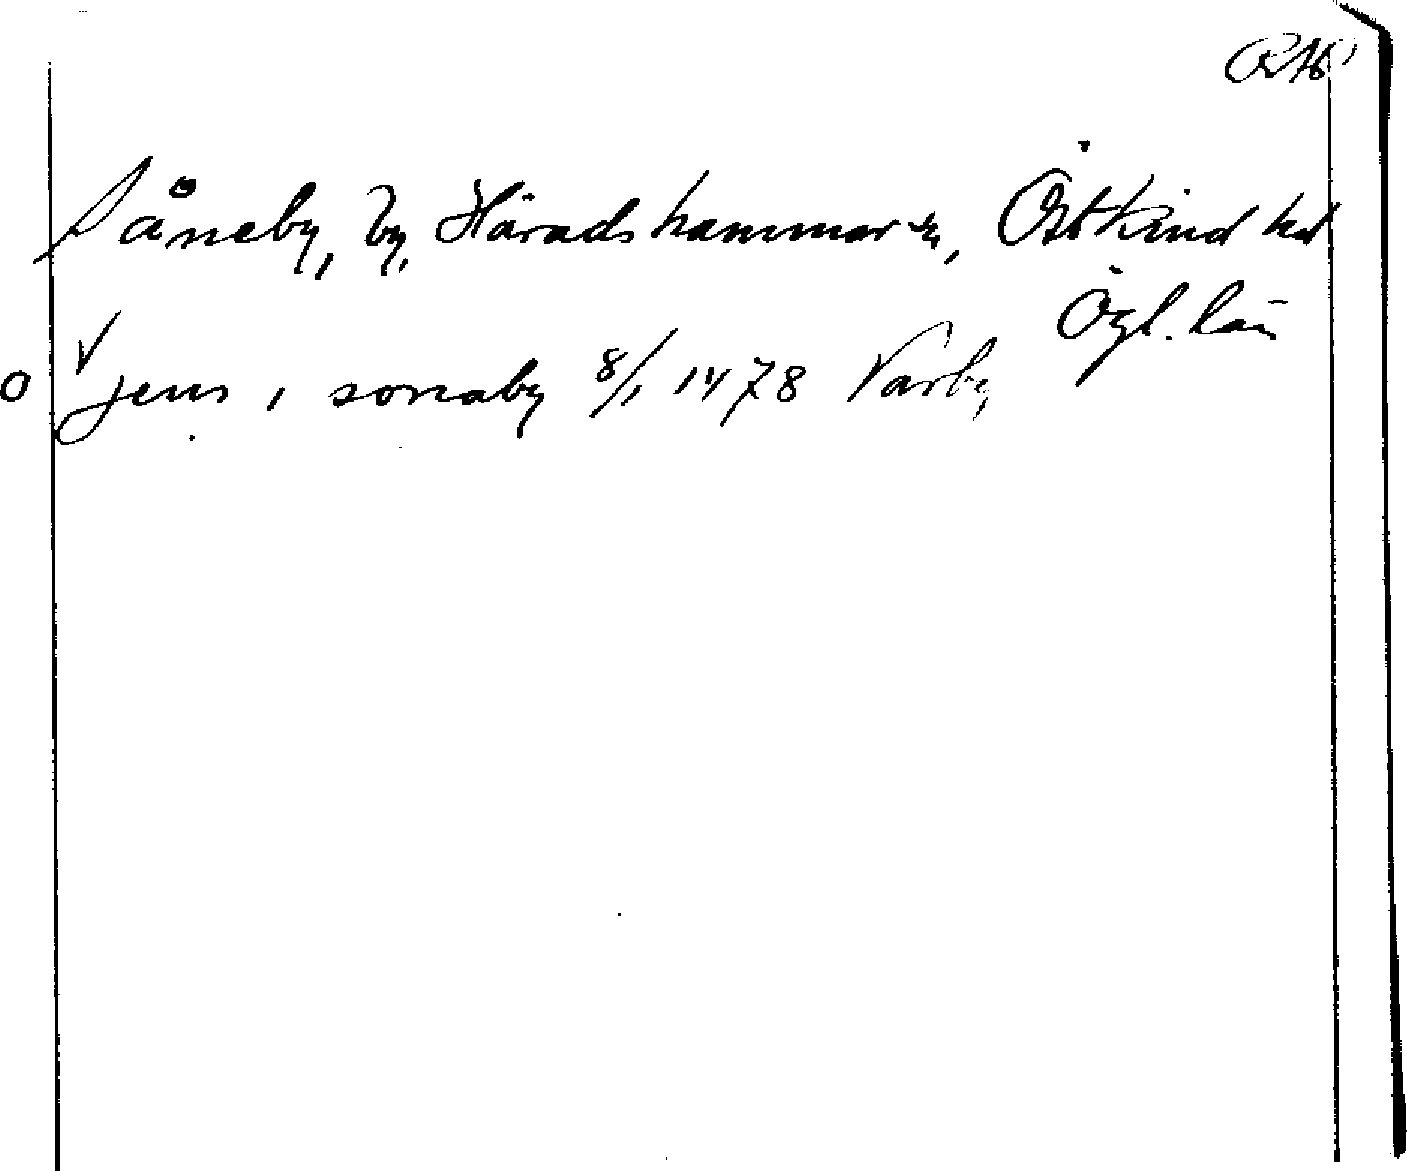 Såneby, by, Häradshammar sn, Östkind hd
Ögl. län
Jens i sonaby 8/1 1478 Varby